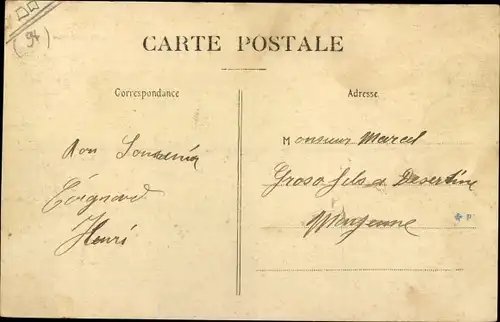 (94)
CARTE POSTALE
Correspondance
Adresse
Bon Souvenir
Coignard
Henri
Monsieur Marcel
Grosofils à Desertine
Mayenne